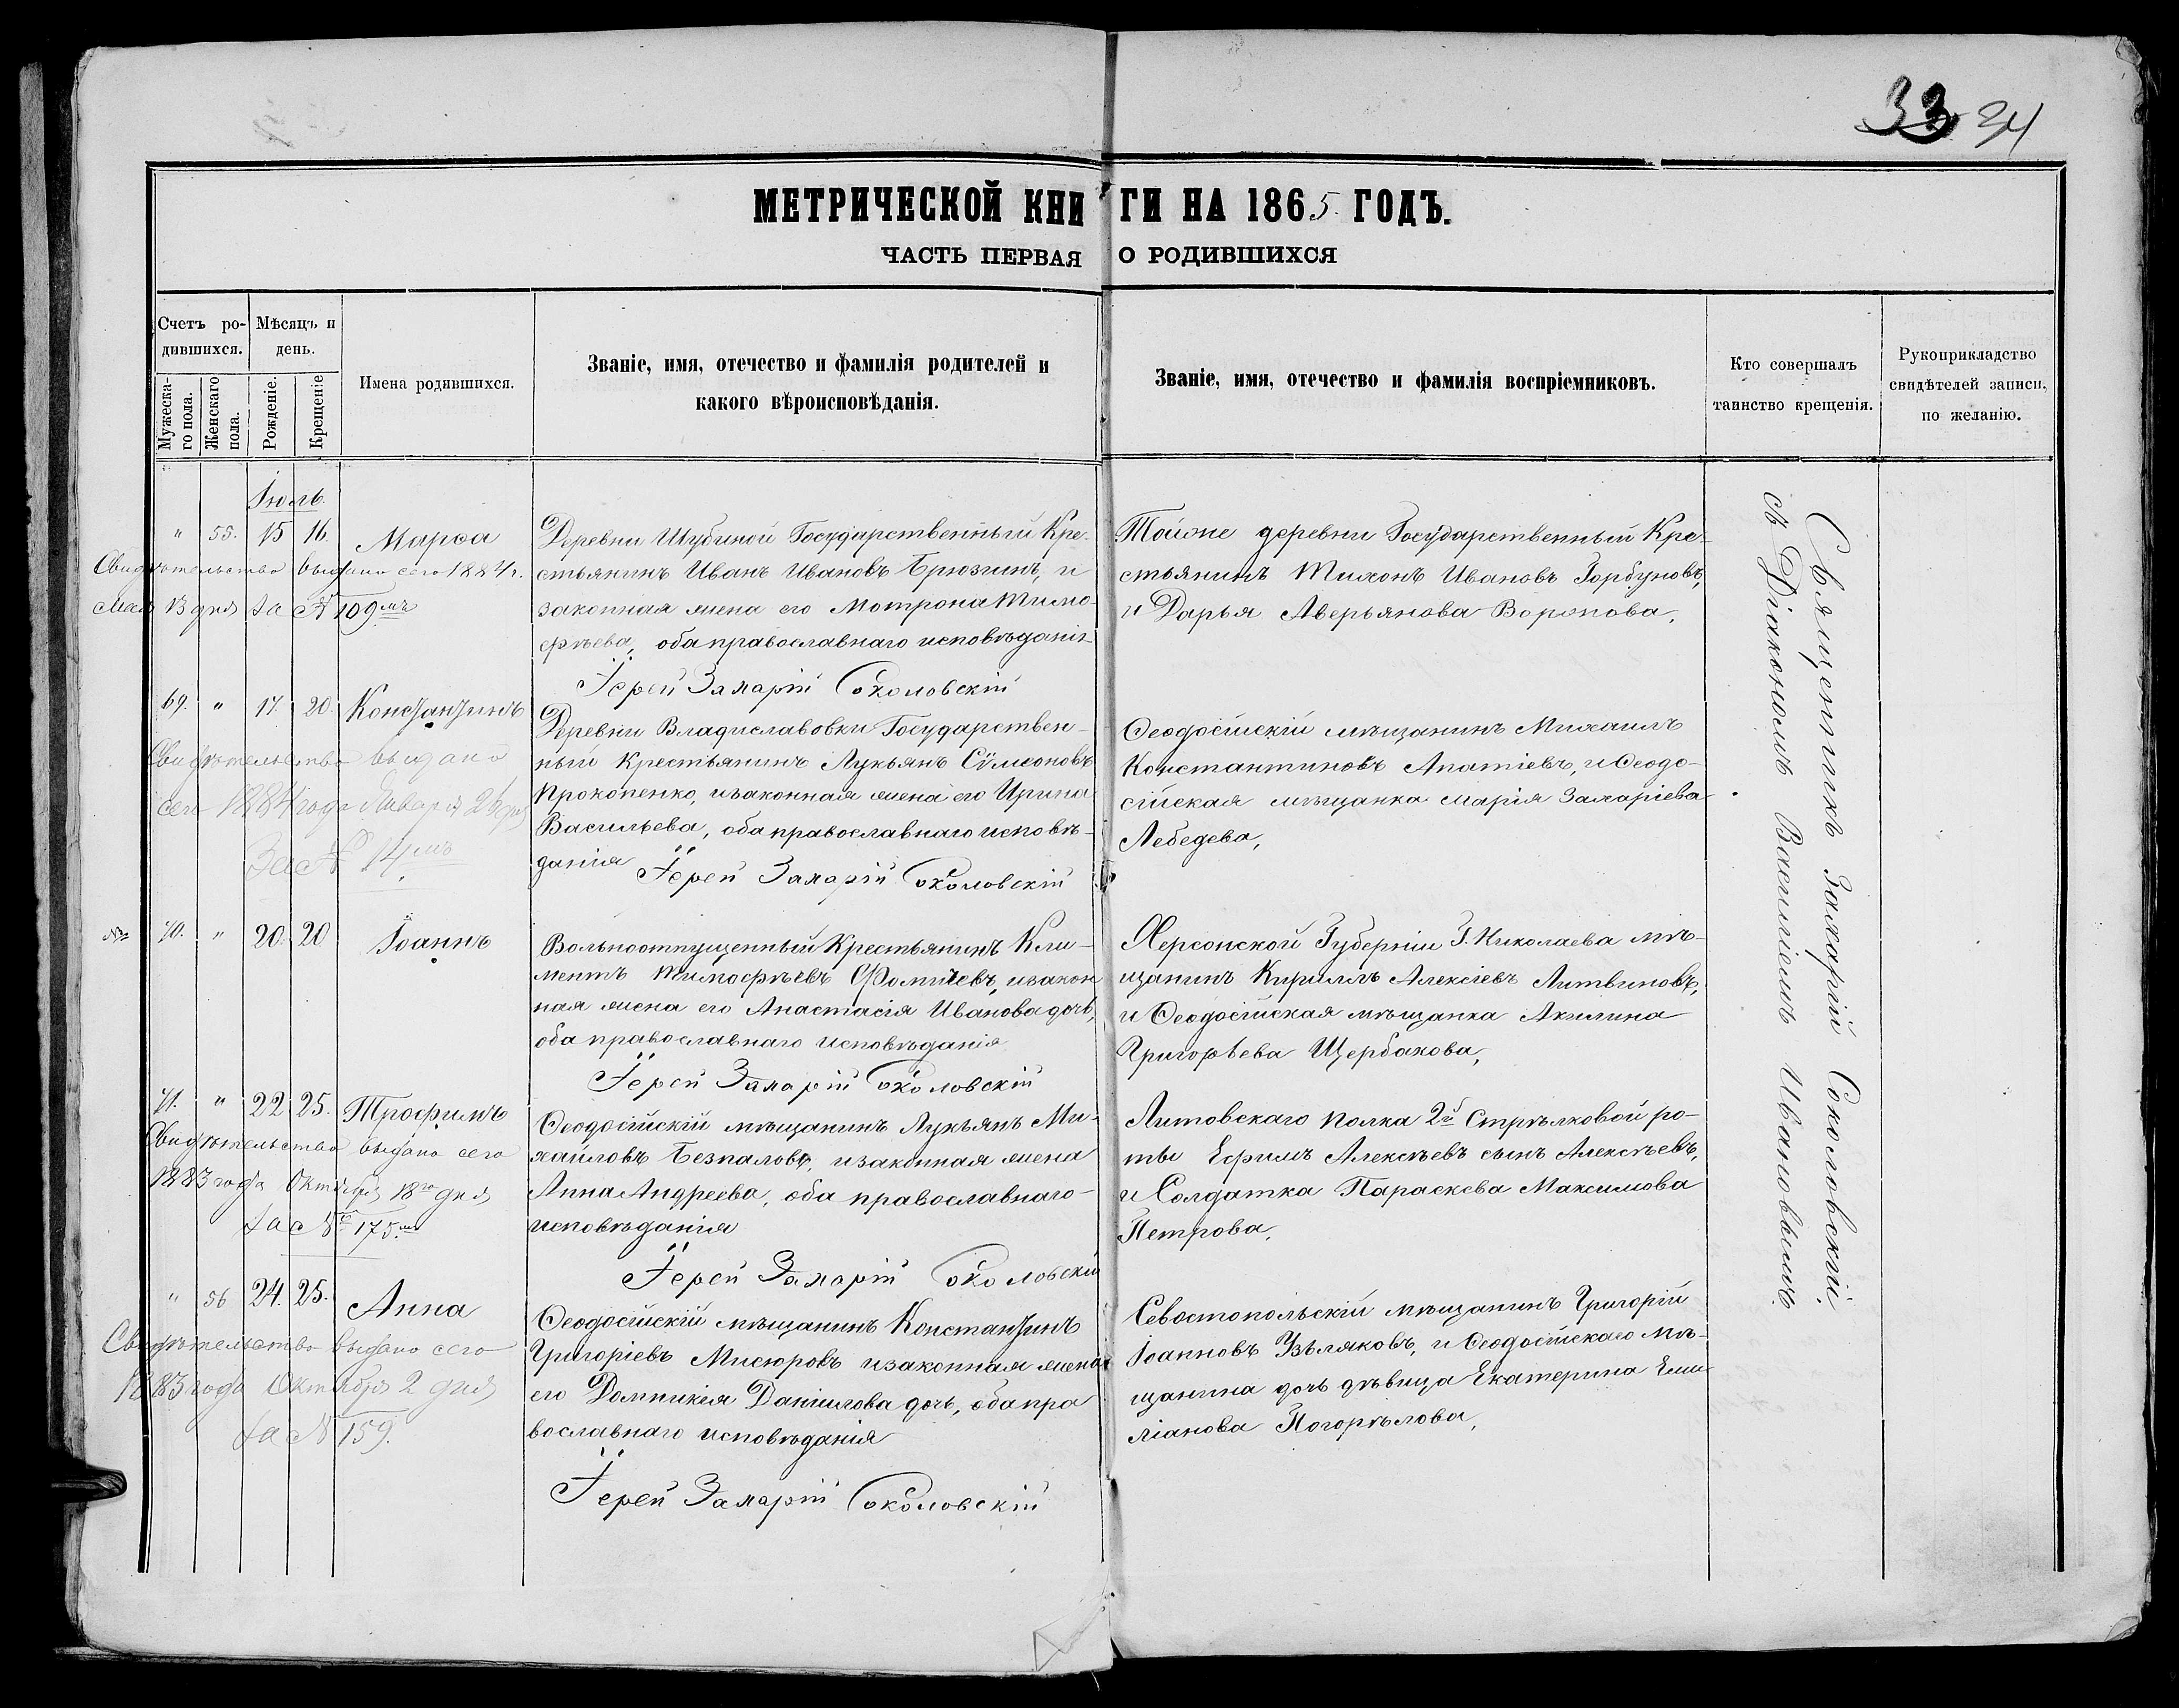 33 34
МЕТРИЧЕСКОЙ КНИГИ НА 1865 ГОДЪ.
ЧАСТЬ ПЕРВАЯ О РОДИВШИХСЯ
Счетъ ро-
дившихся.
Мужеска-
го пола.
Женскаго
пола.
Мѣсяцъ и
день.
Рожденіе.
Крещеніе
Имена родившихся.
Званіе, имя, отечество и фамилія родителей и
какого вѣроисповѣданія.
Званіе, имя, отечество и фамилія воспріемниковъ.
Кто совершалъ
таинство крещенія.
Рукоприкладство
свидѣтелей записи,
по желанію.
Іюль.
" 55. 15 16. Марѳа
Свидѣтельство выдано сего 1884 г.
мая 13 дня за № 109мъ
Деревни Шубиной Государственный Кре-
стьянинъ Иванъ Ивановъ Брюзгинъ, и
законная жена его Мотрона Тимо-
фѣева, оба православнаго исповѣданія
Іерей Захарій Соколовскій
Тойже деревни Государственный Кре-
стьянинъ Тихонъ Ивановъ Горбуновъ,
и Дарья Аверьянова Воронова,
69. " 17. 20. Константинъ
Свидѣтельство выдано
сего 1884 года Января 26 дня
За № 14мъ
Деревни Владиславовки Государствен-
ный Крестьянинъ Лукьянъ Сѵмеоновъ
Прокопенко, изаконная жена его Ирина
Васильева, оба православнаго исповѣ-
данія Іерей Захарій Соколовскій
Ѳеодосійскій мѣщанинъ Михаилъ
Константиновъ Апатіевъ, и Ѳеодо-
сійская мѣщанка Марія Захаріева
Лебедева,
70. " 20. 20 Іоаннъ
Вольноотпущенный Крестьянинъ Кли-
ментъ Тимофѣевъ Фомичевъ, изакон
ная жена его Анастасія Иванова дочь,
оба православнаго исповѣданія
Іерей Захарій Соколовскій
Херсонской Губерніи Г. Николаева мѣ-
щанинъ Кириллъ Алексіевъ Литвиновъ,
и Ѳеодосійская мѣщанка Акилина
Григорьева Щербакова,
71. " 22 25. Трофимъ
Свидѣтельство выдано сего
1883 года Октября 18го дня
за № 175мъ
Ѳеодосійскій мѣщанинъ Лукьянъ Ми-
хайловъ Безпаловъ, изаконная жена
Анна Андреева, оба православнаго
исповѣданія
Іерей Захарій Соколовскій
Литовскаго полка 2й Стрѣлковой ро-
ты Ефимъ Алексѣевъ сынъ Алексѣевъ,
и Солдатка Параскева Максимова
Петрова,
" 56 24. 25. Анна
Свидѣтельство выдано сего
1883 года Октября 2 дня
за № 159.
Ѳеодосійскій мѣщанинъ Константинъ
Григоріевъ Мисюровъ изаконная жена
его Домникія Даніилова дочь, оба пра
вославнаго исповѣданія
Іерей Захарій Соколовскій
Севостопольскій мѣщанинъ Григорій
Іоанновъ Узѣляковъ, и Ѳеодосійскаго мѣ-
щанина дочь дѣвица Екатерина Еми-
ліанова Погорѣлова,
Священникъ Захарій Соколовскій
съ Діакономъ Василіемъ Ивановымъ.